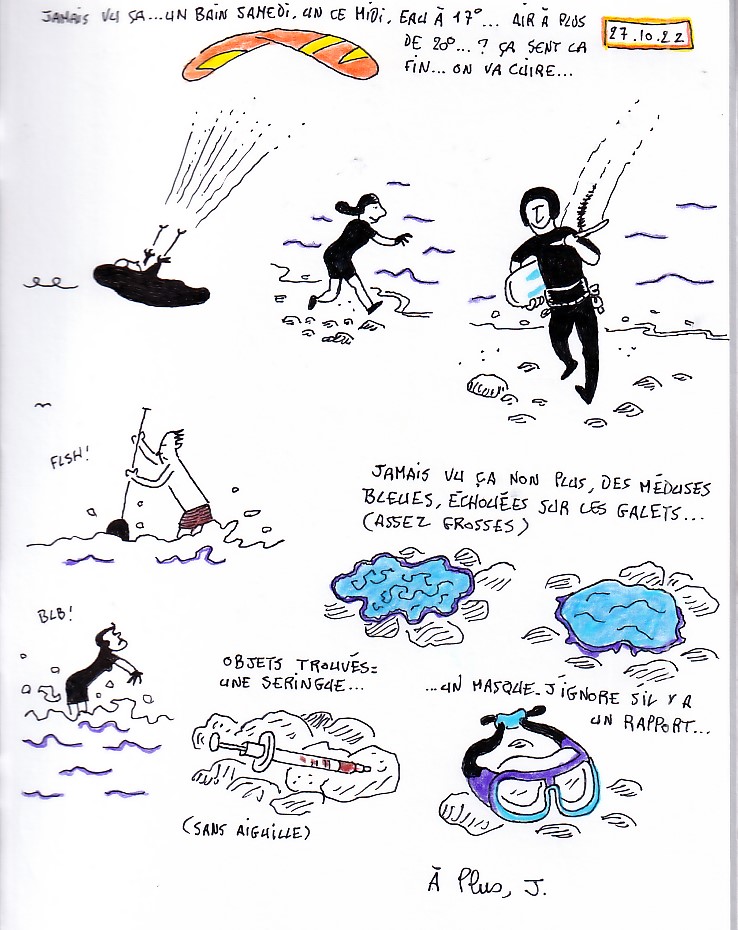 JAMAIS VU ÇA...UN BAIN SAMEDI, UN CE MIDI, EAU À 17°... AIR À PLUS
DE 20°...? ÇA SENT LA
FIN... ON VA CUIRE...
27.10.22
FLSH!
JAMAIS VU ÇA NON PLUS, DES MÉDUSES
BLEUES, ÉCHOUÉES SUR LES GALETS...
(ASSEZ GROSSES)
BLB!
OBJETS TROUVÉS:
UNE SERINGUE...
...UN MASQUE. J'IGNORE S'IL Y A
UN RAPPORT...
(SANS AIGUILLE)
À Plus, J.